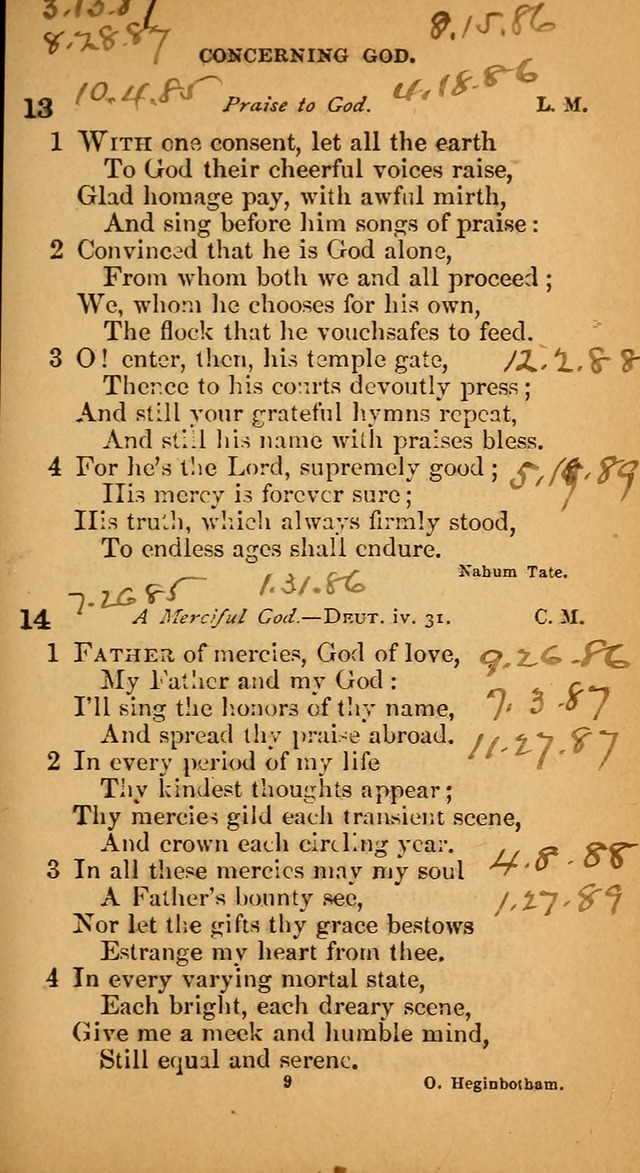 3.13.87 8.15.86
8.28.87
CONCERNING GOD.
10.4.85 4.18.86
13 Praise to God. L. M.
1 WITH one consent, let all the earth
To God their cheerful voices raise,
Glad homage pay, with awful mirth,
And sing before him songs of praise:
2 Convinced that he is God alone,
From whom both we and all proceed;
We, whom he chooses for his own,
The flock that he vouchsafes to feed.
3 O! enter, then, his temple gate, 12.2.88
Thence to his courts devoutly press;
And still your grateful hymns repeat,
And still his name with praises bless.
4 For he's the Lord, supremely good; 5.19.89
His mercy is forever sure;
His truth, which always firmly stood,
To endless ages shall endure.
Nahum Tate.
7.26 85 1.31.86
14 A Merciful God.—DEUT. iv. 31. C. M.
1 FATHER of mercies, God of love, 9.26.86
My Father and my God:
I'll sing the honors of thy name, 7.3.87
And spread thy praise abroad. 11.27.87
2 In every period of my life
Thy kindest thoughts appear;
Thy mercies gild each transient scene,
And crown each circling year.
3 In all these mercies may my soul 4.8.88
A Father's bounty see, 1.27.89
Nor let the gifts thy grace bestows
Estrange my heart from thee.
4 In every varying mortal state,
Each bright, each dreary scene,
Give me a meek and humble mind,
Still equal and serene.
9 O. Heginbotham.